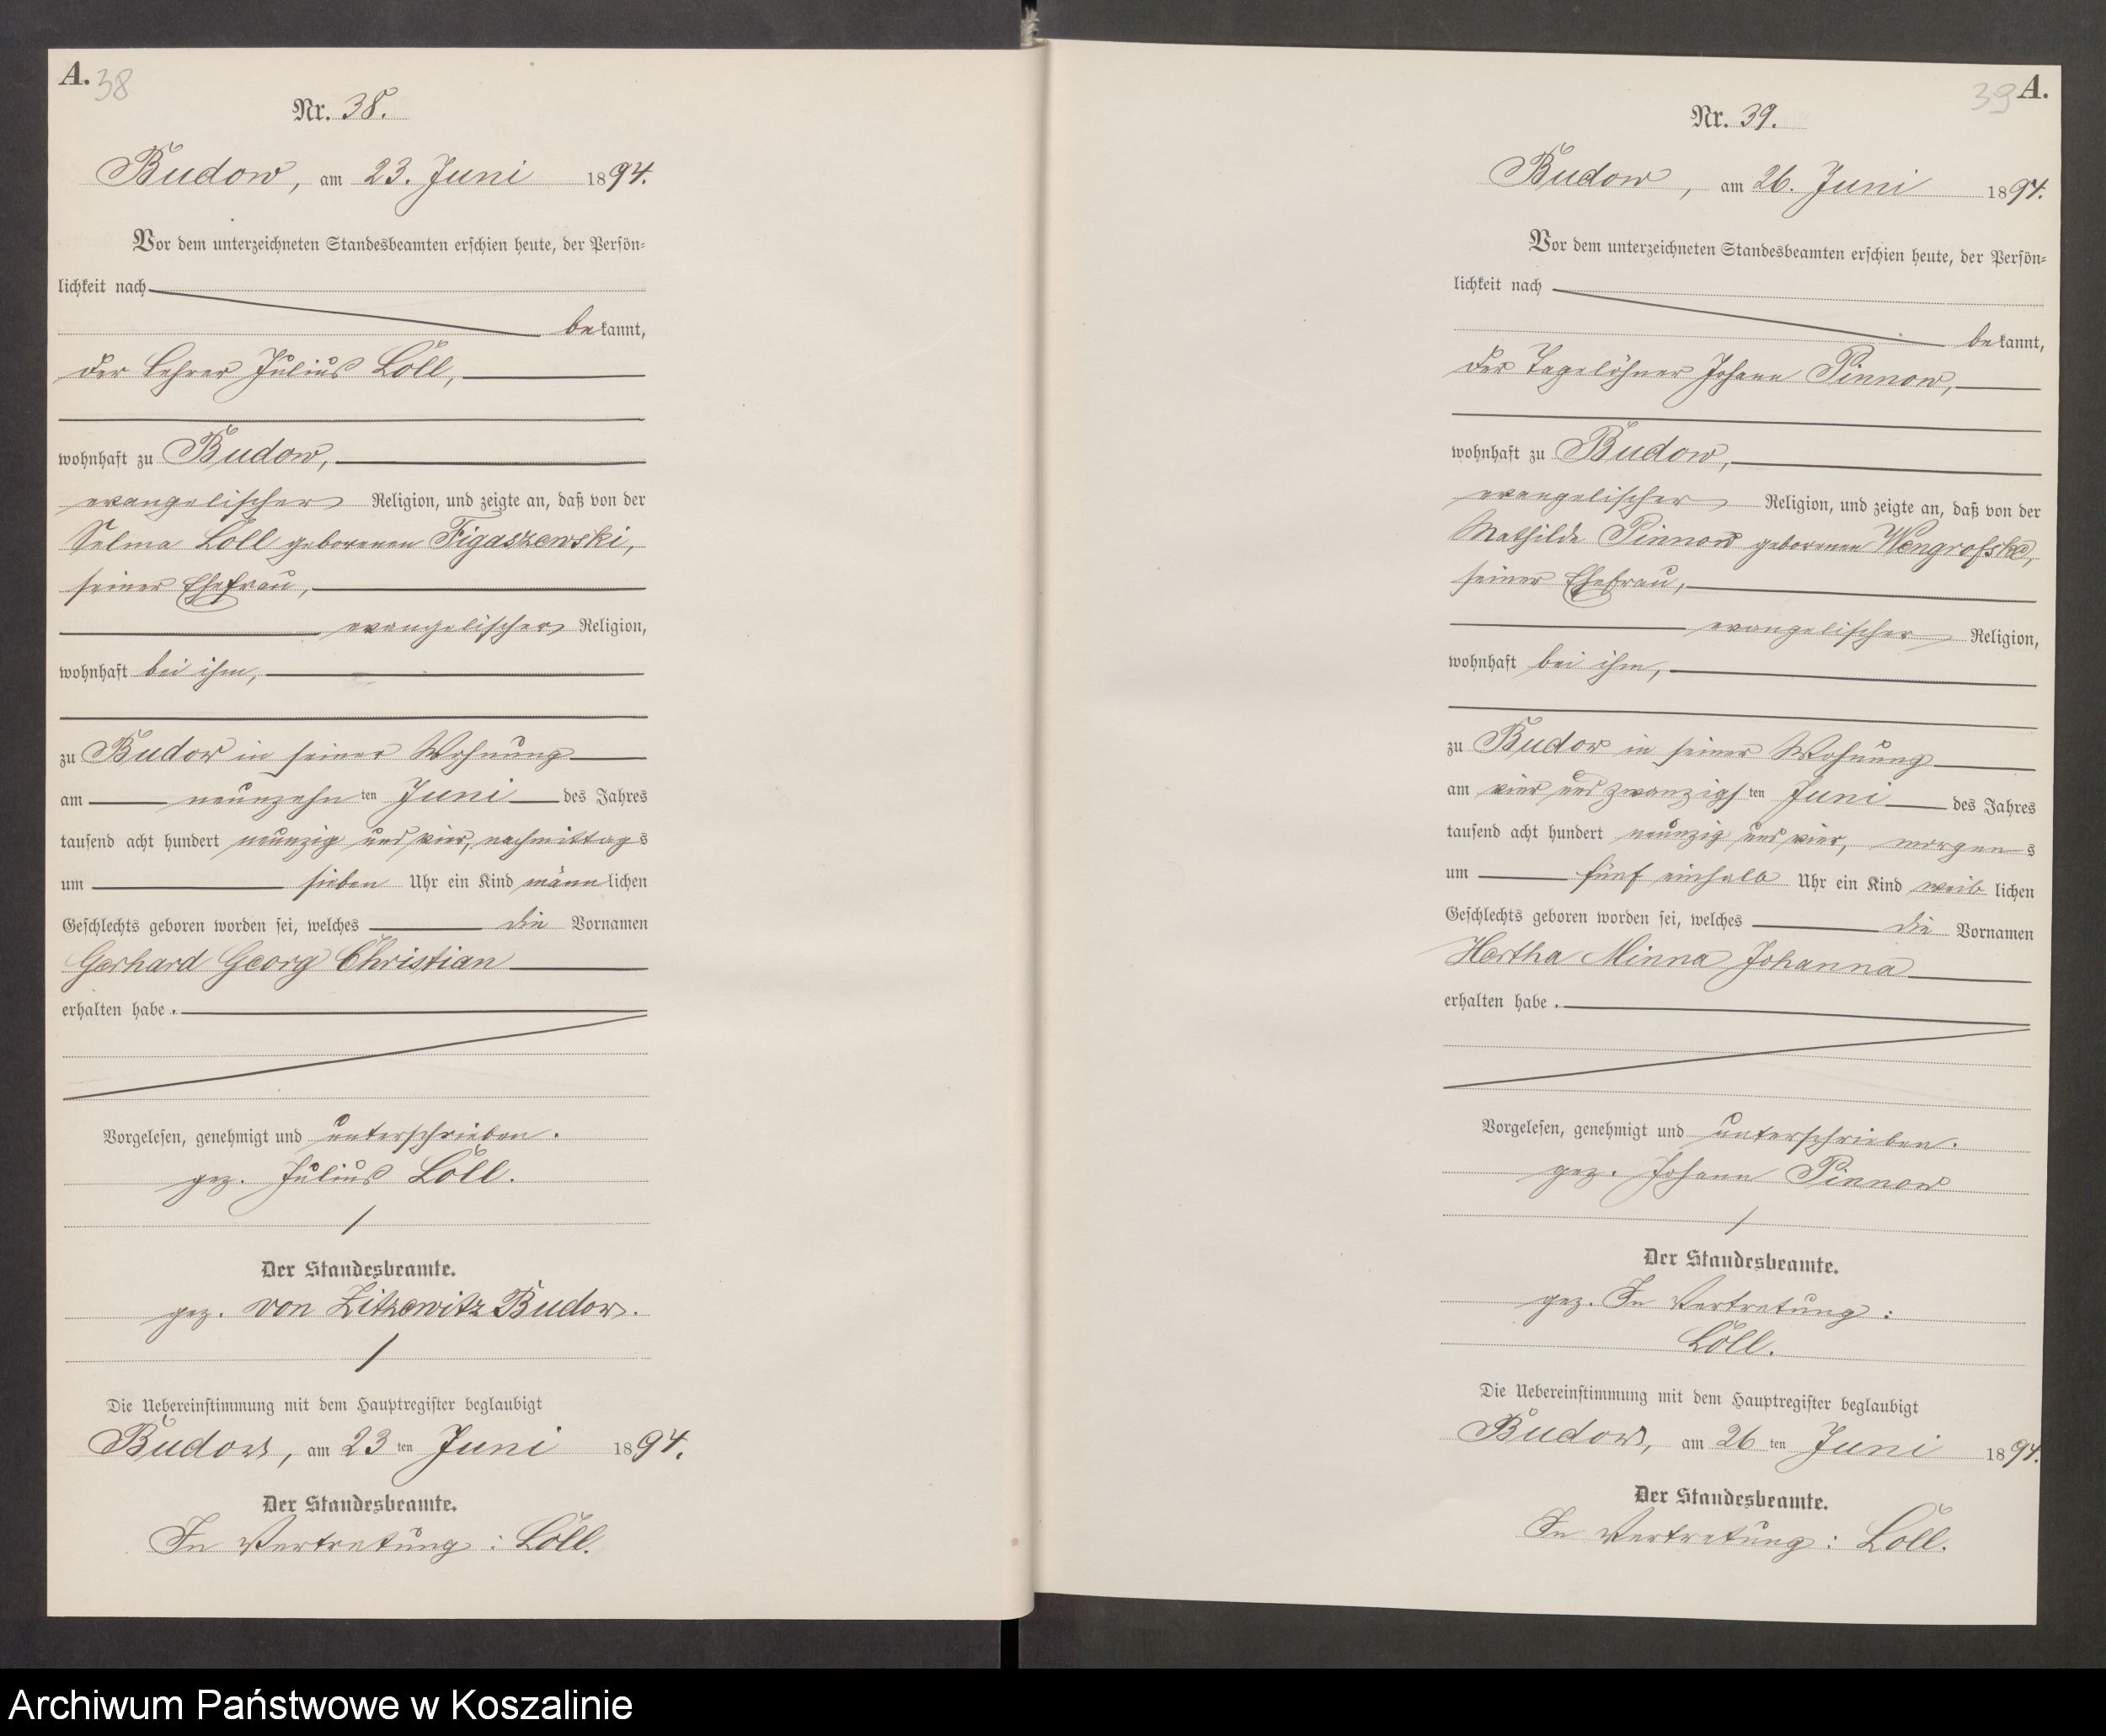 A. 38
Nr. 38.
Budow, am 23. Juni 1894.
Vor dem unterzeichneten Standesbeamten erschien heute, der Persön-
lichkeit nach
bekannt,
der Lehrer Julius Löll,
wohnhaft zu Budow,
evangelischer Religion, und zeigte an, daß von der
Selma Löll geborenen Figaszewski,
seiner Ehefrau,
evangelischer Religion,
wohnhaft bei ihm,
zu Budow in seiner Wohnung
am neunzehnten Juni des Jahres
tausend acht hundert neunzig und vier, nachmittags
um sieben Uhr ein Kind männlichen
Geschlechts geboren worden sei, welches die Vornamen
Gerhard Georg Christian
erhalten habe.
Vorgelesen, genehmigt und unterschrieben.
gez. Julius Löll.
Der Standesbeamte.
gez. von Zitzewitz Budow.
Die Uebereinstimmung mit dem Hauptregister beglaubigt
Budow, am 23ten Juni 1894.
Der Standesbeamte.
In Vertretung: Löll.
39 A.
Nr. 39.
Budow, am 26. Juni 1894.
Vor dem unterzeichneten Standesbeamten erschien heute, der Persön-
lichkeit nach
bekannt,
der Tagelöhner Johann Pinnow,
wohnhaft zu Budow,
evangelischer Religion, und zeigte an, daß von der
Mathilde Pinnow geborenen Wengrofske,
seiner Ehefrau,
evangelischer Religion,
wohnhaft bei ihm,
zu Budow in seiner Wohnung
am vier und zwanzigsten Juni des Jahres
tausend acht hundert neunzig und vier, morgens
um fünf einhalb Uhr ein Kind weiblichen
Geschlechts geboren worden sei, welches die Vornamen
Hertha Minna Johanna
erhalten habe.
Vorgelesen, genehmigt und unterschrieben.
gez. Johann Pinnow
Der Standesbeamte.
gez. In Vertretung:
Löll.
Die Uebereinstimmung mit dem Hauptregister beglaubigt
Budow, am 26ten Juni 1894.
Der Standesbeamte.
In Vertretung: Löll.
Archiwum Państwowe w Koszalinie